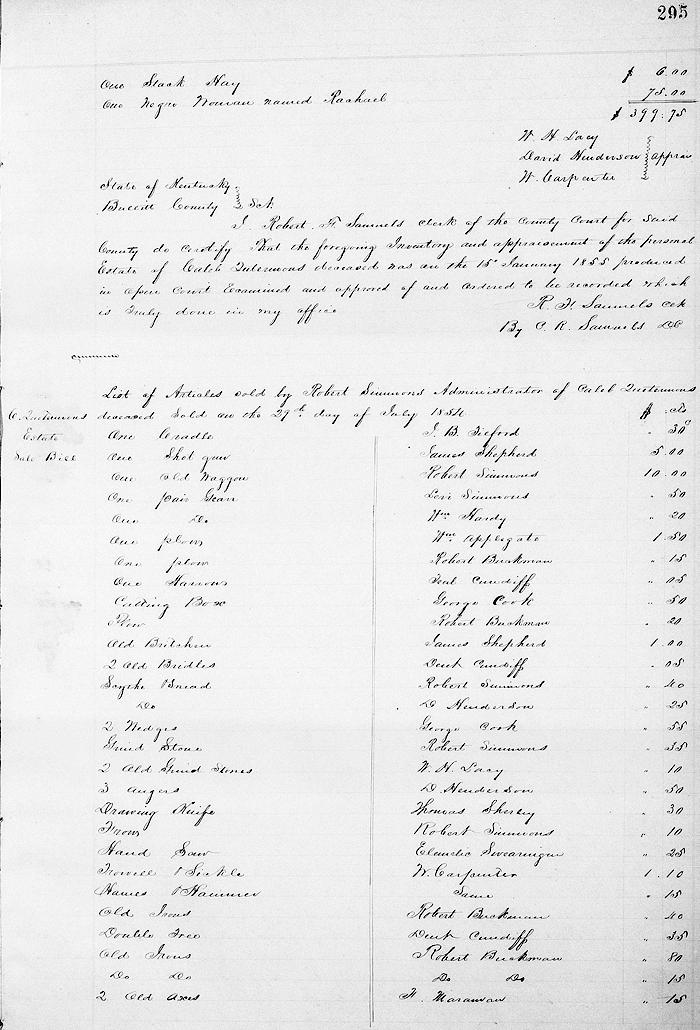 295
One Stack Hay $ 6.00
One Negro Woman named Rachael 75.00
$ 399.75
W. H. Lacy
David Henderson
W. Carpenter
State of Kentucky
Bullitt County Sct
I Robert F. Samuels clerk of the County Court for said
County do certify That the foregoing Inventory and appraisement of the personal
Estate of Caleb Quternous deceased was on the 15 January 1855 produced
in open Court Examined and approved of and ordered to be recorded which
is truly done in my office
R. F. Samuels
By C. R. Samuels DC
List of Articles sold by Robert Simmons Administrator of Caleb Quternous
C. Quternous deceased Sold on the 29th day of July 1854 $ cts
Estate One Cradle " 30
Sale Bill One Shot gun James Shepherd 5.00
One Old Waggon Robert Simmons 10.00
One pair Gears Levi Simmons " 50
One Do Wm Hardy " 20
One plow Wm Applegate 1.50
One plow Robert Buckman " 15
One Harrow Dent Cundiff " 05
Cutting Box George Cook " 50
Plow Robert Buckman " 20
Old Britchin James Shepherd 1.00
2 Old Bridles Dent Cundiff " 05
Scythe & Snead Robert Simmons " 40
Do D Henderson " 25
2 Wedges George Cook " 55
Grind Stone Robert Simmons " 55
2 Old Grind Stones W. H. Lacy " 10
3 Augers D. Henderson " 50
Drawing Knife Thomas Sherly " 30
Frow Robert Simmons " 10
Hand Saw Swearingen " 25
Trowell & Sickle W. Carpenter 1.10
Hames & Hammer Same " 15
Old Irons Robert Buckman " 40
Double Tree Dent Cundiff " 35
Old Irons Robert Buckman " 80
Do Do Do Do " 15
2 Old axes " 15